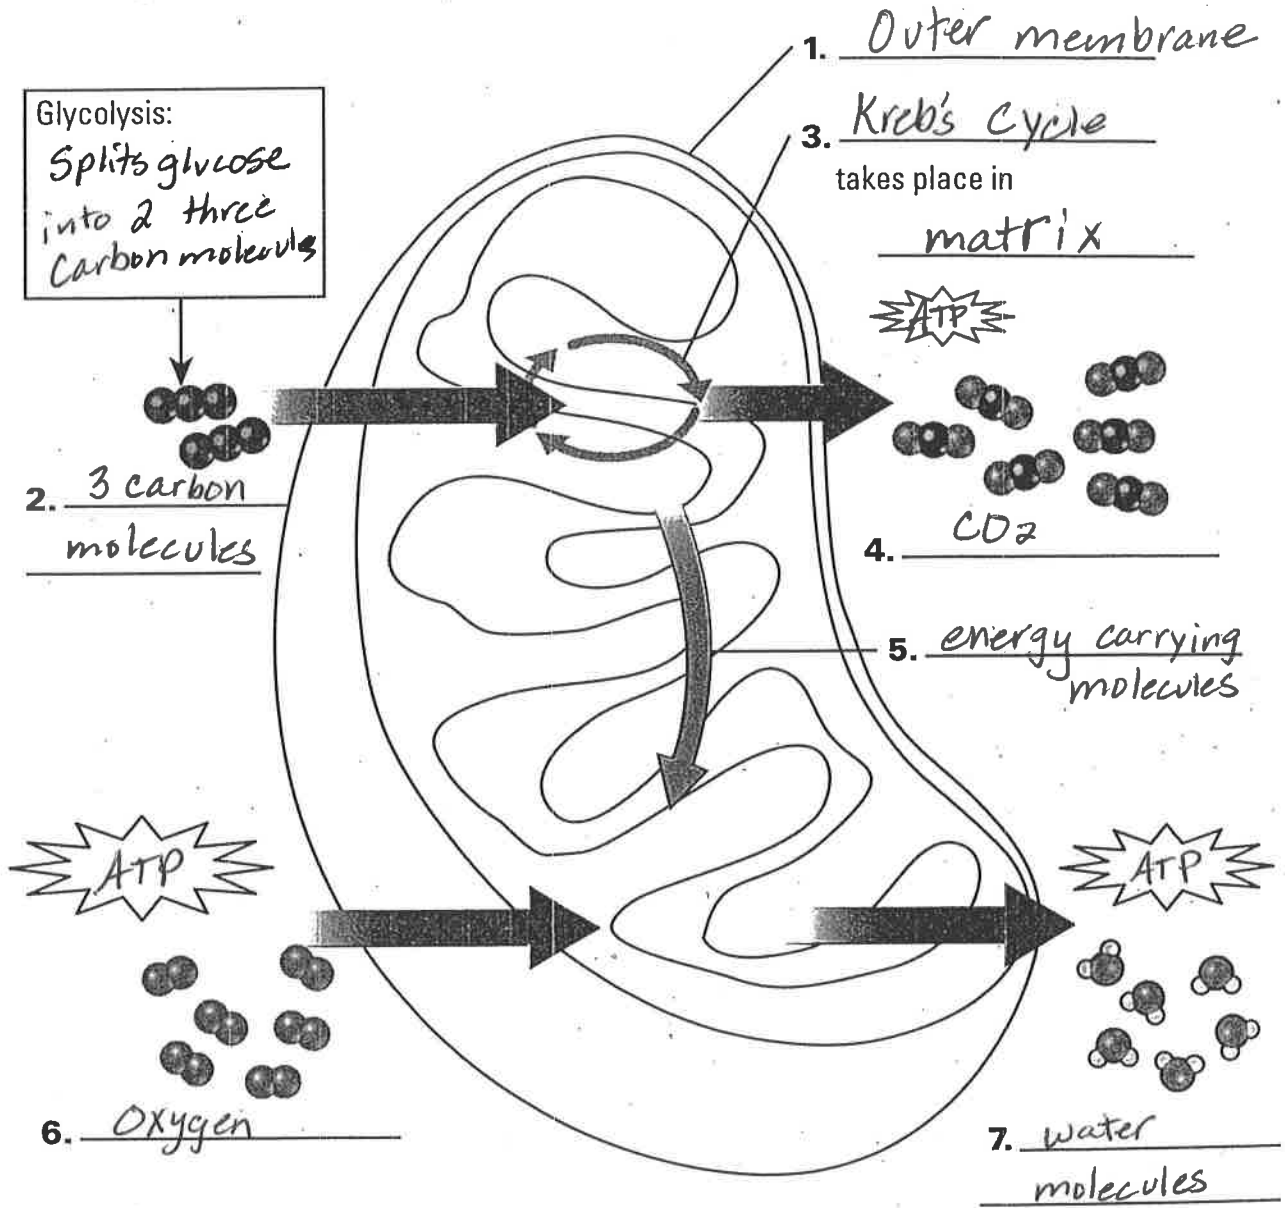 1. Outer membrane
Glycolysis:
Splits glucose
into 2 three
Carbon molecules
3. Kreb's Cycle
takes place in
matrix
ATP
2. 3 carbon
molecules
4. CO2
5. energy carrying
molecules
ATP
ATP
6. Oxygen
7. water
molecules